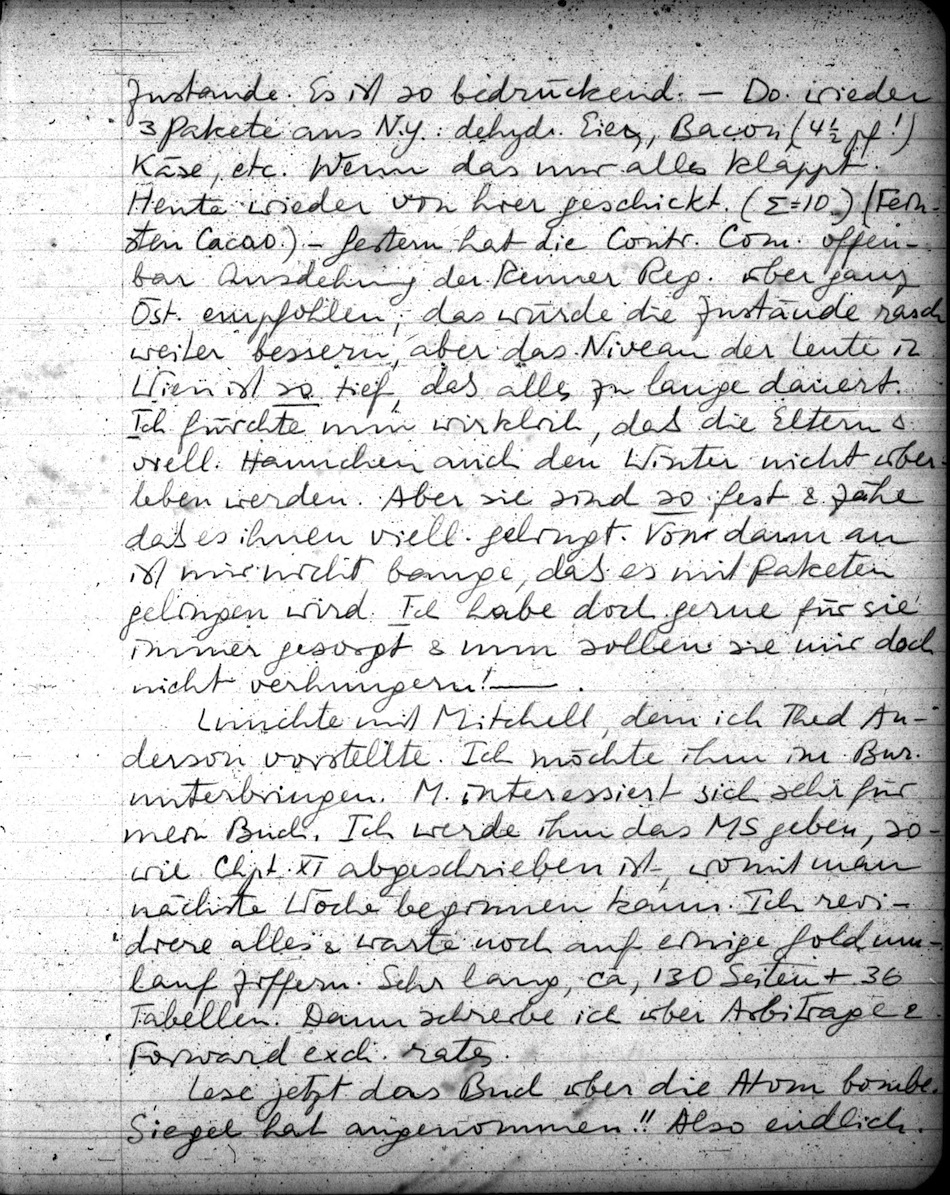 Zustände. Es ist so bedrückend. – Do. wieder
3 Pakete aus N.Y.: dehydr. Eier, Bacon (4½ pf!)
Käse, etc. Wenn das nur alles klappt.
Heute wieder von hier geschickt. (Σ=10) (Fein-
sten Cacao.) – Gestern hat die Contr. Com. offen-
bar Ausdehnung der Renner Reg. über ganz
Öst. empfohlen; das würde die Zustände rasch
weiter bessern, aber das Niveau der Leute in
Wien ist so tief, daß alles zu lange dauert.
Ich fürchte nun wirklich, daß die Eltern &
viell. Hannchen auch den Winter nicht über-
leben werden. Aber sie sind so fest & zähe
daß es ihnen viell. gelingt. Von dann an
ist mir nicht bange, daß es mit Paketen
gelingen wird. Ich habe doch gerne für sie
immer gesorgt & nun sollen sie mir doch
nicht verhungern! — .
Lunchte mit Mitchell, dem ich Thed An-
derson vorstellte. Ich möchte ihn im Bur.
unterbringen. M. interessiert sich sehr für
mein Buch. Ich werde ihm das MS geben, so-
wie Chpt. XI abgeschrieben ist, womit man
nächste Woche beginnen kann. Ich revi-
diere alles & warte noch auf einige Goldum-
lauf Ziffern. Sehr lang, ca, 130 Seiten + 36
Tabellen. Dann schreibe ich über Arbitrage &
Forward exch. rates.
Lese jetzt das Buch über die Atom bombe.
Siegel hat angenommen!! Also endlich.